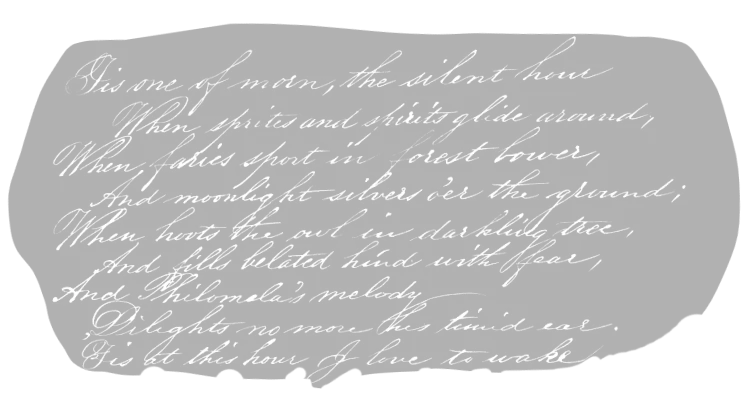 Tis one of morn, the silent hour
When sprites and spirits glide around,
When, faries sport in forest bower,
And moonlight silvers o'er the ground;
When hoots the owl in darkling tree,
And fills belated hind with fear,
And Philomela's melody
Dilights no more his timid ear.
Tis at this hour I love to wake